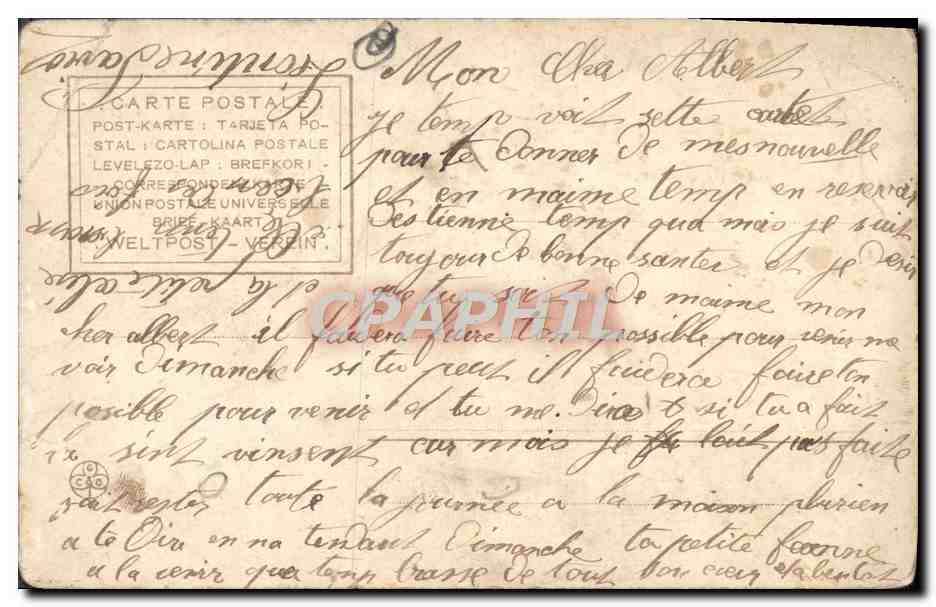 Mon Cher Albert
je temp voit sette carte
pour te donner de mes nouvelle
et en maime temp en resevoir
des tienne temp qua moi je suit
toujour de bonne santer et je desir
que tu soit de maime mon
cher albert il faudera faire ton possible pour venir me
voir dimanche si tu peut il faudera faire ton
posible pour venir et tu me diras si tu a fait
sint vinsent car mois je lait pas faite
restes toute la journée a la maison plurien
a te dire en na tendant dimanche ta petite femme
a la venir que temp brasse de tout bon coeur et a bientot
et la petite
CARTE POSTALE
POST-KARTE : TARJETA PO-
STAL : CARTOLINA POSTALE
LEVELEZO-LAP : BREFKORI -
CORRESPONDENZKARTE
UNION POSTALE UNIVERSELLE
BRIEF-KAART
WELTPOST - VEREIN
CPAPHIL